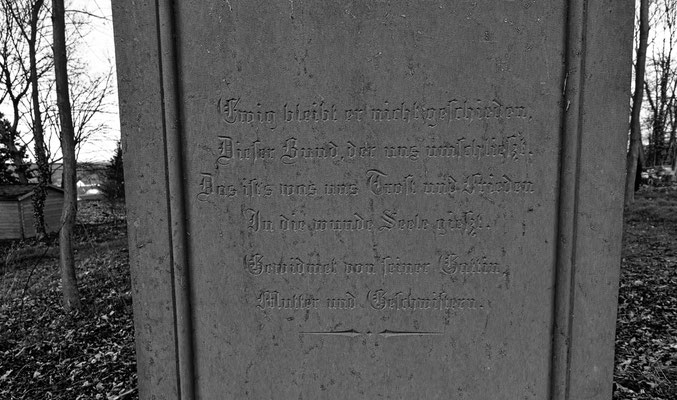 Ewig bleibt er nicht geschieden,
Dieser Bund, der uns umschließt,
Das ist's was uns Trost und Frieden
In die wunde Seele gießt.
Gewidmet von seiner Gattin,
Mutter und Geschwistern.